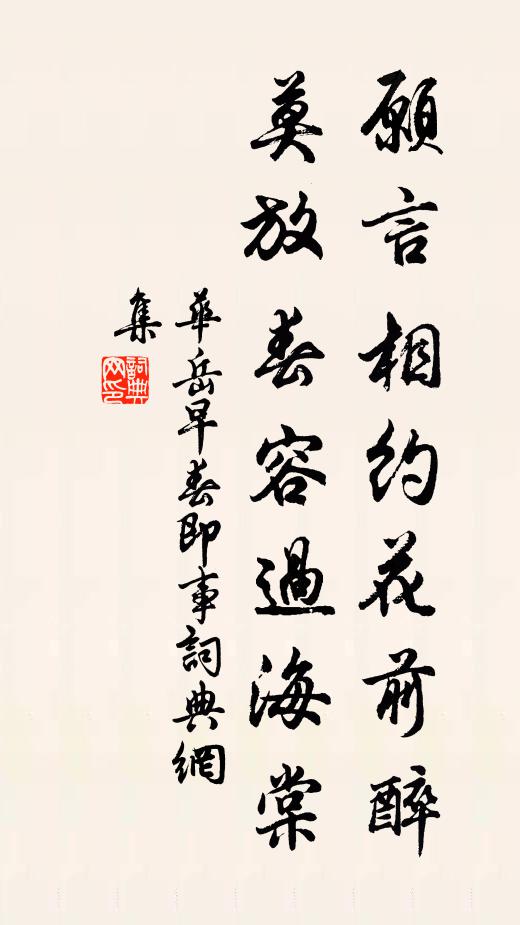 願言相約花前醉
莫放春容過海棠
華岳早春即事詞典網
集
詞典
网印